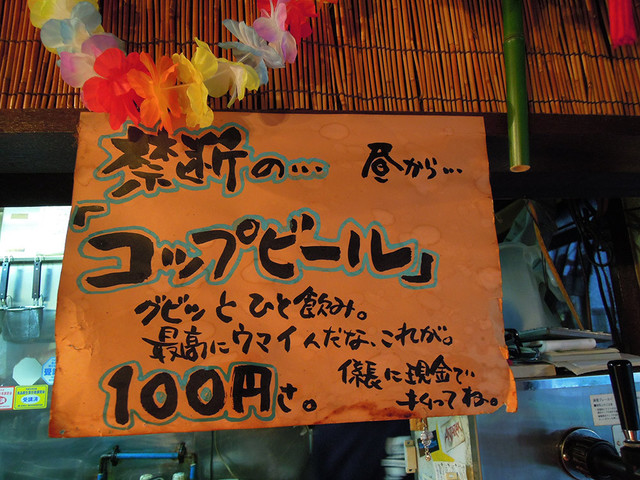 禁断の… 昼から…
「コップビール」
グビッとひと飲み。
最高にウマイんだな、これが。
100円さ。
係長に現金でい
すくってね〜。
受講済